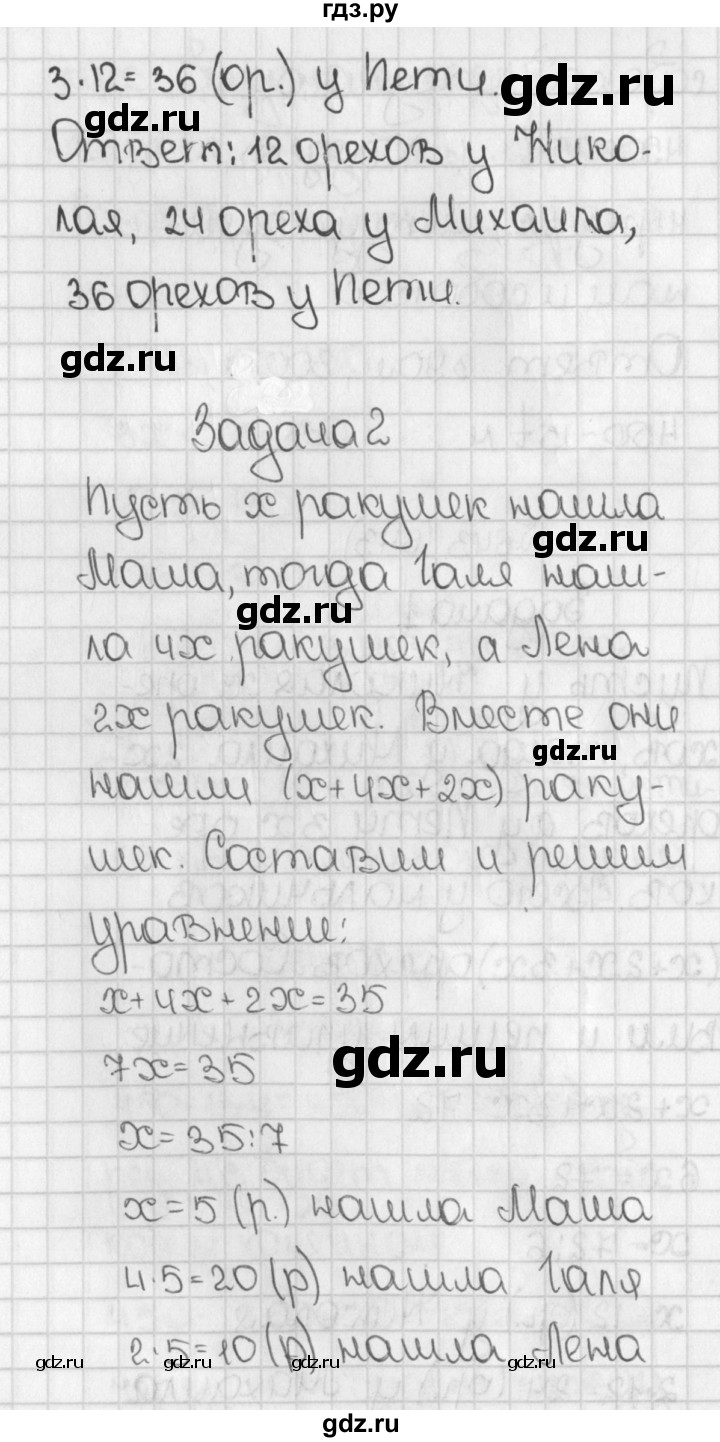 гдз.ру
3·12=36 (ор.) у Пети.
gdz.ru
gdz.ru
Ответ: 12 орехов у Нико-
лая, 24 ореха у Михаила,
36 орехов у Пети.
gdz.ru
Задача 2
Пусть x ракушек нашла
gdz.ru
Маша, тогда Галя наш-
gdz.ru
ла 4x ракушек, а Лена
2x ракушек. Вместе они
gdz.ru
нашли (x+4x+2x) раку-
шек. Составим и решим
уравнение:
x+4x+2x=35
gdz.ru
7x=35
x=35:7
x=5 (р.) нашла Маша
4·5=20 (р) нашла Галя
2·5=10 (р) нашла Лена
gdz.ru gdz.ru gdz.ru gdz.ru
gdz.ru